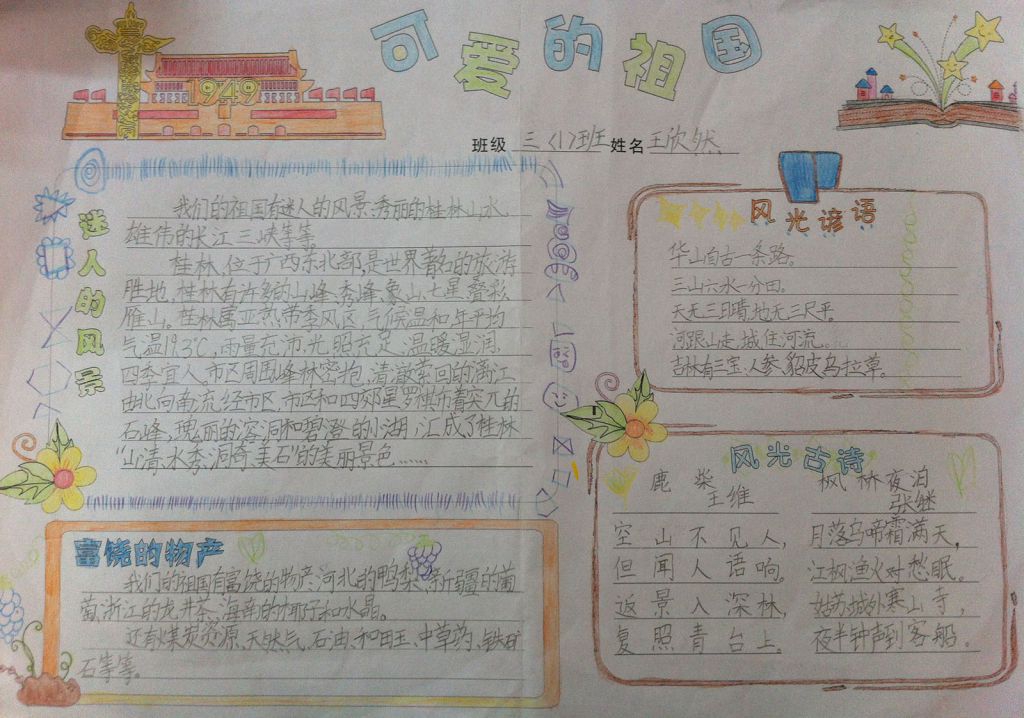 可爱的祖国
1949
班级 三〈1〉班 姓名 王欣然
迷人的风景
我们的祖国有迷人的风景、秀丽的桂林山水、
雄伟的长江三峡等等。
桂林,位于广西东北部,是世界著名的旅游
胜地,桂林有许多的山峰、秀峰、象山、七星、叠彩、
雁山。桂林属亚热带季风区,气候温和,年平均
气温19.3℃,雨量充沛,光照充足,温暖湿润,
四季宜人。市区周围峰林密抱,清澈萦回的漓江
由北向南流经市区,市区和四郊星罗棋布着突兀的
石峰,瑰丽的溶洞和碧澄的小湖,汇成了桂林
“山清、水秀、洞奇、美石”的美丽景色……
富饶的物产
我们的祖国有富饶的物产:河北的鸭梨、新疆的葡
萄、浙江的龙井茶、海南的椰子和水晶。
还有煤炭资源、天然气、石油、和田玉、中草药、铁矿
石等等。
风光谚语
华山自古一条路。
三山六水一分田。
天无三日晴,地无三尺平。
河跟山走,城住河流。
吉林有三宝:人参、貂皮、乌拉草。
风光古诗
鹿柴
王维
空山不见人,
但闻人语响。
返景入深林,
复照青台上。
枫林夜泊
张继
月落乌啼霜满天,
江枫渔火对愁眠。
姑苏城外寒山寺,
夜半钟声到客船。